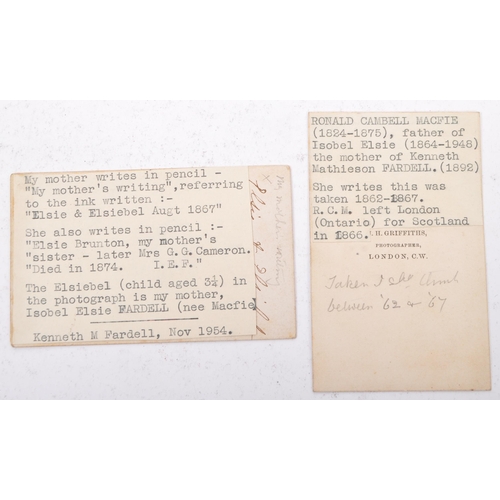 My mother writes in pencil -
"My mother's writing", referring
to the ink written :-
"Elsie & Elsiebel Augt 1867"
She also writes in pencil :-
"Elsie Brunton, my mother's
"sister - later Mrs G.G. Cameron.
"Died in 1874. I.E.F."
The Elsiebel (child aged 3¼) in
the photograph is my mother,
Isobel Elsie FARDELL (nee Macfie
Kenneth M Fardell, Nov 1954.
My mother's writing
Elsie & Elsiebel
RONALD CAMBELL MACFIE
(1824-1875), father of
Isobel Elsie (1864-1948)
the mother of Kenneth
Mathieson FARDELL.(1892)
She writes this was
taken 1862-1867.
R.C.M. left London
(Ontario) for Scotland
in 1866.
H. GRIFFITHS,
PHOTOGRAPHER,
LONDON, C.W.
Taken I
between '62 & '67